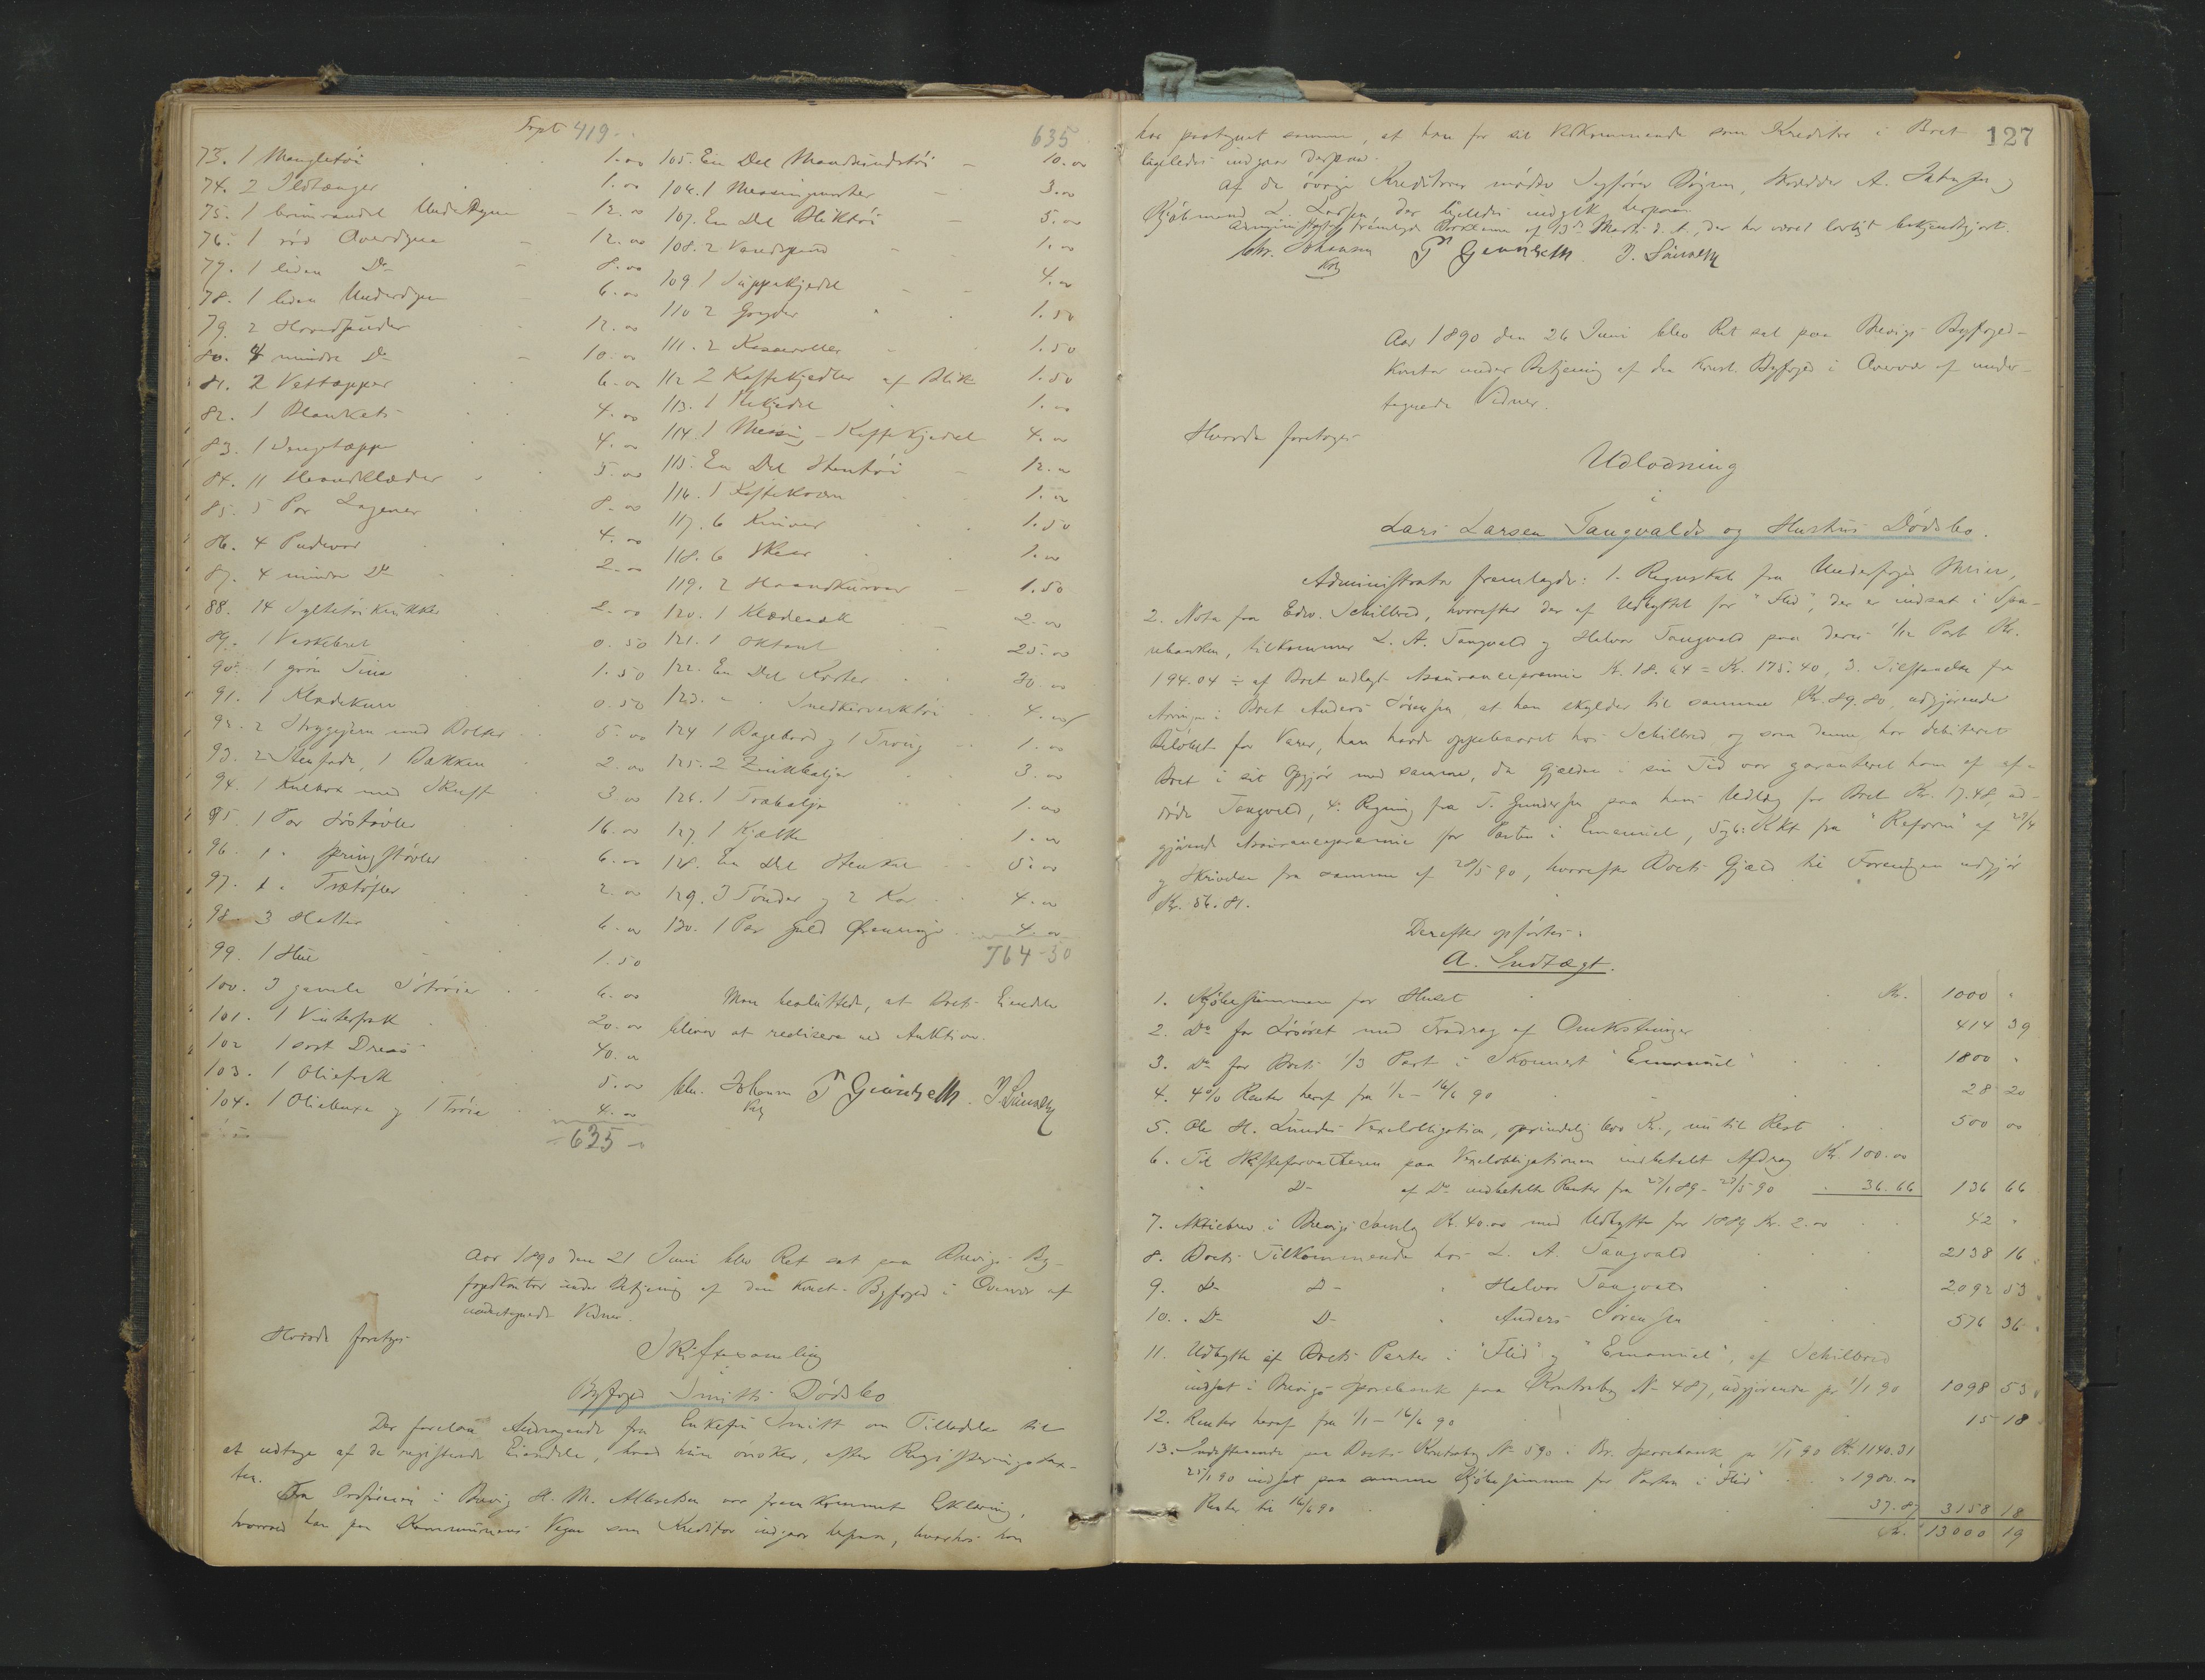 Trpt 419.
73. 1 Mangletøi 1.00
74. 2 Ildtænger 1.00
75. 1 brunrandet Underdyne 12.00
76. 1 rød Overdyne 12.00
77. 1 liden Do 8.00
78. 1 liden Underdyne 6.00
79. 2 Hovedpuder 12.00
80. 4 mindre Do 10.00
81. 2 Vattæpper 6.00
82. 1 Blankets 4.00
83. 1 Sengetæppe 4.00
84. 11 Haandklæder 5.00
85. 5 Par Lagener 8.00
86. 4 Pudevar 4.00
87. 4 mindre Do 2.00
88. 14 Syltetøikrukker 2.00
89. 1 Vaskebret 0.50
90. 1 grøn Tine 1.50
91. 1 Klædekurv 0.50
92. 2 Strygejern med Bolter 5.00
93. 2 Stenfade, 1 Bakken 2.00
94. 1 Kulbox med Skuffe 3.00
95. 1 Par Søstøvler 16.00
96. 1 " Springstøvler 6.00
97. 1 " Trætøfler 2.00
98. 3 Hatter 6.00
99. 1 Hue 1.50
100. 3 gamle Søtrøier 6.00
101. 1 Vinterfrak 20.00
102. 1 sort Dress 40.00
103. 1 Oliefrak 5.00
104. 1 Oliebuxe og 1 Trøie 4.00
635
635
105. En Del Mandsundertøi 10.00
106. 1 Messingmorter 3.00
107. En Del Bliktøi 5.00
108. 2 Vandspand 1.00
109. 1 Suppekjedel 4.00
110. 2 Gryder 1.50
111. 2 Kasseroller 1.50
112. 2 Kaffekjedler af Blik 1.50
113. 1 Thekjedel 1.00
114. 1 Messing-Kaffekjedel 4.00
115. En Del Stentøi 12.00
116. 1 Kaffekværn 1.00
117. 6 Kniver 1.50
118. 6 Skeer 1.00
119. 2 Haandkurver 1.50
120. 1 Klædesæk 2.00
121. 1 Oktant 25.00
122. En Del Karter 30.00
123. " " Snedkerverktøi 4.00
124. 1 Bagebord og 1 Troug 1.00
125. 2 Zinkbaljer 3.00
126. 1 Træbalje 1.00
127. 1 Kjælke 1.00
128. En Del Stenkul 5.00
129. 3 Tønder og 2 Kar 4.00
130. 1 Par Guld Ørenringe 4.00
764-30
Man besluttede, at Boets Eiendele
bliver at realisere ved Auktion.
Chr. Johansen
Aar 1890 den 21 Juni blev Ret sat paa Brevigs By-
fogedkontor under Betjening af den konst. Byfoged i Overvær af
undertegnede Vidner.
Hvorda foretoges
Skiftesamling
i
Byfoged Smitts Dødsbo
Der forelaa Andragende fra Enkefru Smitt om Tilladelse til
at udtage af de registrerede Eiendele, hvad hun ønsker, efter Registreringstax-
ten.
Fra Ordføreren i Brevig H. M. Albretsen var fremkommet Erklæring,
hvorved han paa Kommunens Vegne som Kreditor indgaar herpaa, hvorhos han
127
har paategnet samme, at han for sit Vedkommende som Kreditor i Boet
ligeledes indgaar derpaa.
Af de øvrige Kreditorer mødte Sagfører Bøgen, Skrædder A. og
Kjøbmand L. Larsen, der ligeledes indgik herpaa.
Administrator fremlagde Proklama af 13de Marts d. A., der har været lovligt bekjendtgjort.
Chr. Johansen
Aar 1890 den 26 Juni blev Ret sat paa Brevigs Byfoged-
kontor under Betjening af den konst. Byfoged i Overvær af under-
tegnede Vidner.
Hvorda foretoges
Udlodning
i
Lars Larsen Tangvalds og Hustrus Dødsbo.
Administrator fremlagde: 1. Regnskab fra Underfoged
2. Nota fra Edv. Schilbred, hvorefter der af Udbyttet for "Flid", der er indsat i Spa-
rebanken, tilkommer L. A. Tangvald og Halvor Tangvald paa deres 1/12 Part Kr.
194.04 ÷ af Boet udlagt Assurancepræmie Kr. 18.64 = Kr. 175.40, 3. Tilstaaelse fra
Arving i Boet Anders Sørensen, at han skylder til samme Kr. 89.80, udgjørende
Beløbet for Varer, han havde oppebaaret hos Schilbred og som denne har debiteret
Boet i sit Opgjør med samme, da Gjælden i sin Tid var garanteret ham af af-
døde Tangvald, 4. Regning fra T. Gundersen paa hans Udlæg for Boet Kr. 17.48, ud-
gjørende Assurancepræmie for Parten i Emanuel, 5 og 6: Rkt fra "Reform" af 29/4
og Skrivelse fra samme af 28/5 90, hvorefter Boets Gjæld til Foreningen udgjør
Kr. 56.81.
Derefter opførtes:
A. Indtægt.
1. Kjøbesummen for Huset Kr. 1000 "
2. Do for Løsøret med Fradrag af Omkostninger 414 39
3. Do for Boets 1/3 Part i Skonnert "Emanuel" 1800 "
4. 4% Renter heraf fra 1/2 - 16/6 90 28 20
5. Ole H. Lundes Vexelobligation, oprindelig 600 Kr., nu til Rest 500 00
6. Til Skifteforvalteren paa Vexelobligationen indbetalt Afdrag Kr. 100.00
" Do af Do indbetalte Renter fra 23/1 89 - 23/5 90 " 36.66 136 66
7. Aktiebrev i Brevigs Samlag Kr. 40.00 med Udbytte for 1889 Kr. 2.00 42 "
8. Boets Tilkommende hos L. A. Tangvald 2138 16
9. Do Do " Halvor Tangvald 2092 53
10. Do Do " Anders Sørensen 576 36
11. Udbytte af Boets Parter i "Flid" og "Emanuel", af Schilbred
indsat i Brevigs Sparebank paa Kontrabog No 487, udgjørende pr 1/1 90 1098 53
12. Renter heraf fra 1/1 - 16/6 90 15 18
13. Indestaaende paa Boets Kontrabog No 590 i Br. Sparebank pr 1/1 90 Kr. 1140.31
25/1 90 indsat paa samme Kjøbesummen for Parten i "Flid" " 1980.00
Renter til 16/6 90 37.87 3158 18
Kr. 13000 19